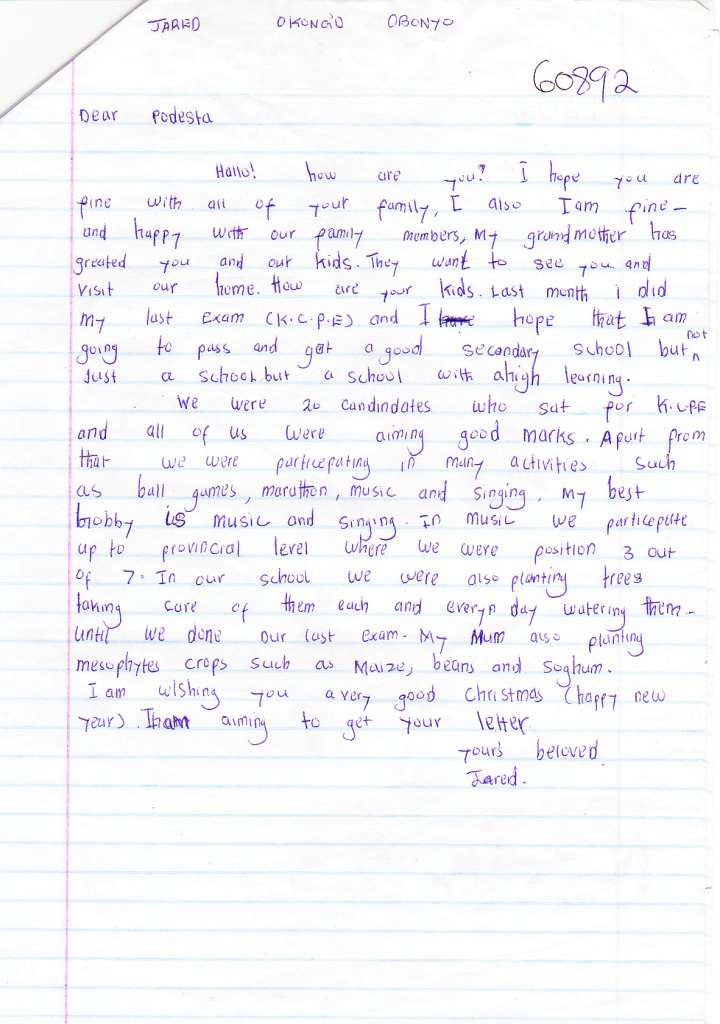 JARED OKONG'O OBONYO
60892
Dear Podesta
Hallo! how are you? I hope you are
fine with all of your family, I also I am fine -
and happy with our family members, My grandmother has
greated you and our kids. They want to see you and
visit our home. How are your kids. Last month i did
my last exam (K.C.P.E) and I hope that I am
going to pass and get a good secondary school but not
Just a school but a school with a high learning.
We were 20 candindates who sat for K.CPE
and all of us were aiming good marks. Apart from
that we were particepating in many activities such
as ball games, marathon, music and singing. My best
hobby is music and singing. In music we particepate
up to provincial level where we were position 3 out
of 7. In our school we were also planting trees
taking care of them each and everyn day watering them -
until we done our last exam. My Mum also planting
mesophytes crops such as Maize, beans and Soghum.
I am wishing you a very good Christmas (happy new
year). I am aiming to get your letter.
your's beloved.
Jared.